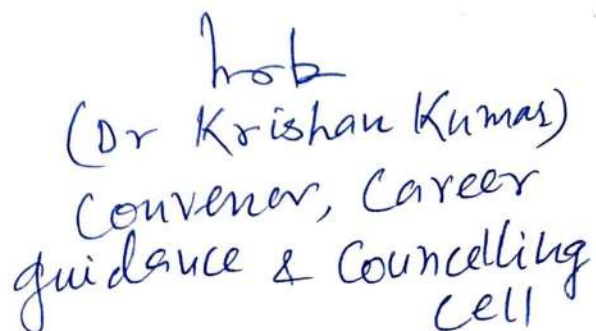 (Dr Krishan Kumar)
Convenor, Career
guidance & Councelling
Cell